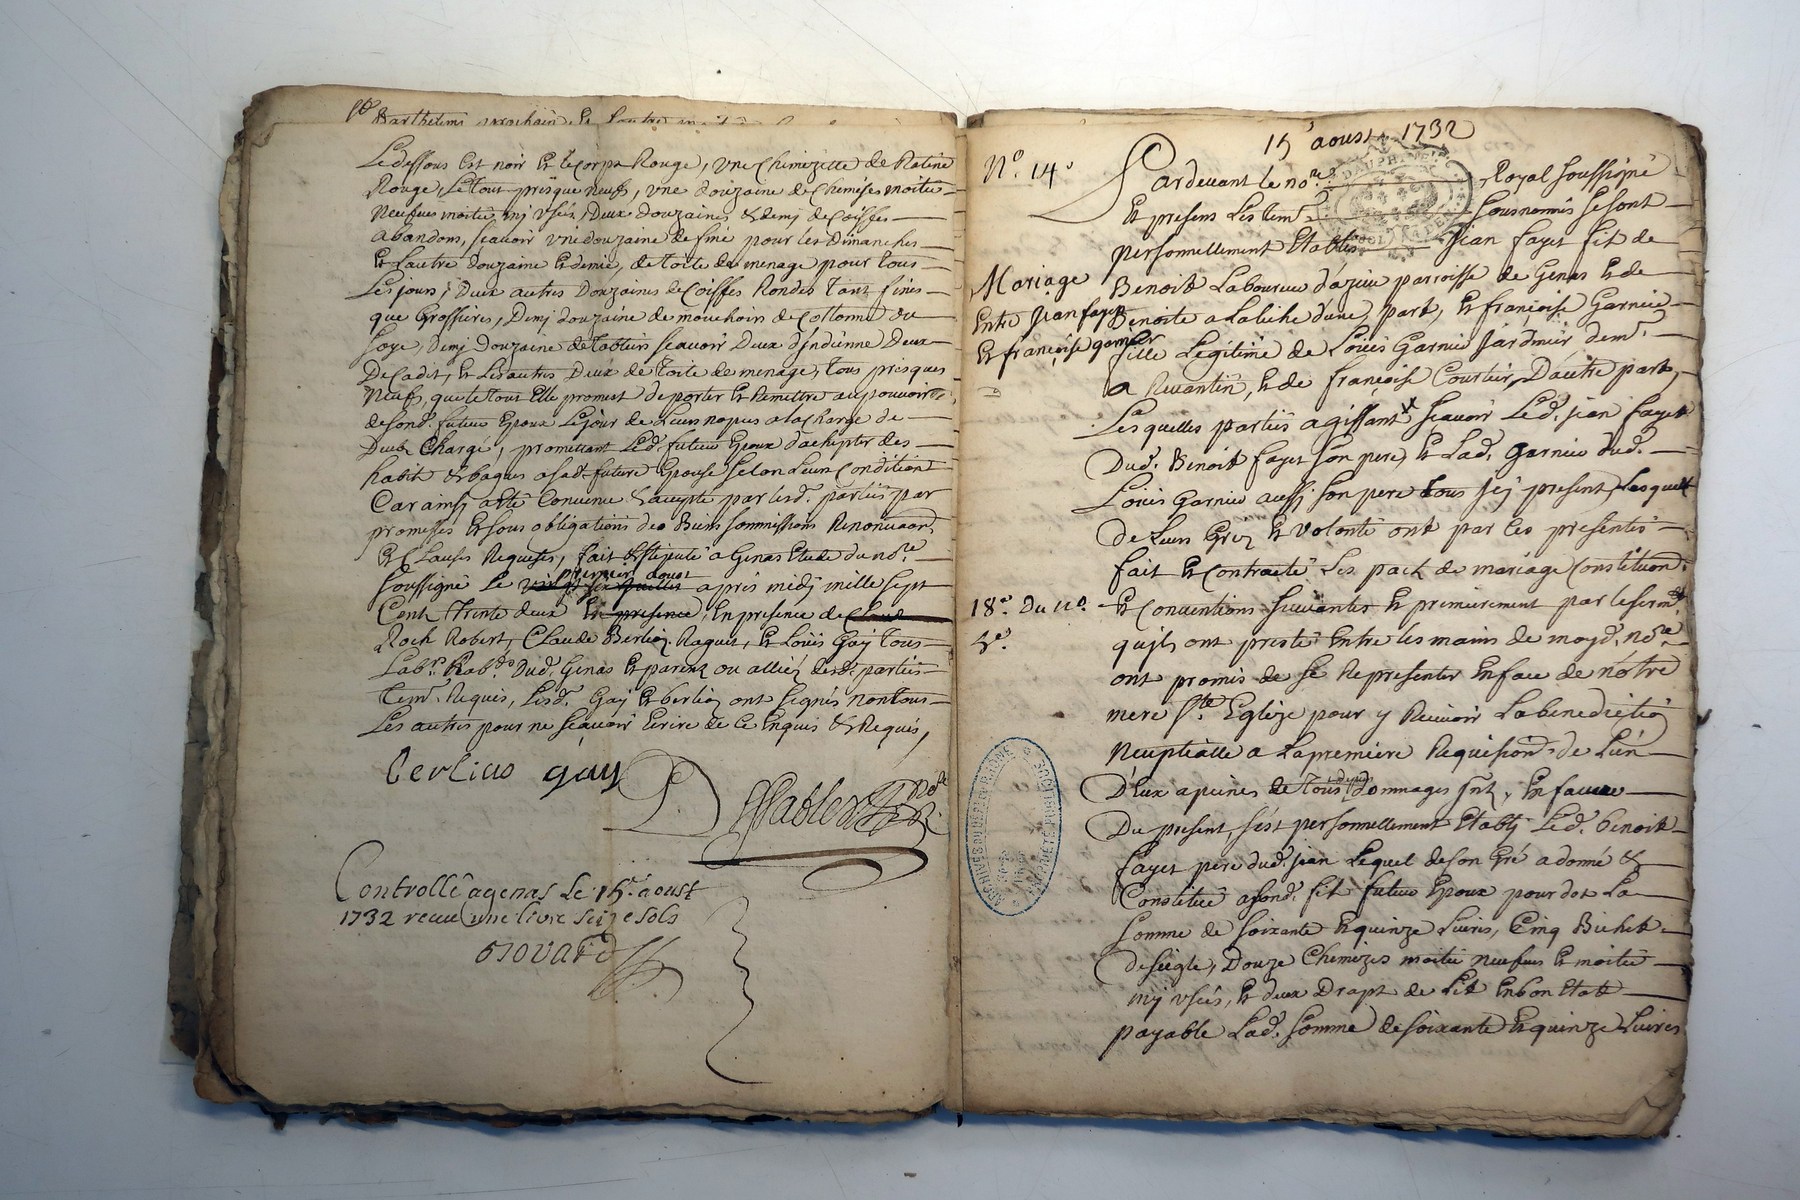 Barthelemi prochain, Et
Le dessous Est noir Et le Corps Rouge, une Chemizette de Ratine
Rouge, Le tout presque neufs, une douzaine de Chemises moitié
neufves moitié mj usées, Deux douzaines & demj de Coiffes
abandons, scavoir une douzaine de fine pour les Dimanches
Et Lautre douzaine Et demie, de toile de menage pour tous
Les jours, Deux autres Douzaines de Coiffes Rondes tant fines
que Grossieres, Demj douzaine de mouchoirs de Cottonne ou
Soye, demj Douzaine de tabliers scavoir Deux d'jndienne Deux
De Cadis, Et Les autres Deux de toile de menage, tous presques
neufs, que le tout Elle promest de porter Et Remettre au pouvoir
de son d. futeur Epoux Le jour de Leurs nopces a la Charge de
Deub Chargé, promettant Led. futeur Epoux d'achepter des
habits & bagues a sad. future Epouse selon Leur Condition
Car ainsj a été Convenu & accepté par lesd. parties par
promesses Et sous obligations des Biens soumissions Renonciaon.
Et Clauses Requises, fait & stipulé a Genas Etude du nore.
premier aoust
soussigné Le après midj mille sept
Cent trente deux Et presence, En presence de Claude
Roch Robert, Claude Berlioz Raquet, Et Loüis Gay tous
Labrs. habds. Dud. Genas Et parens ou alliéz desd. parties
Temr. Requis, Lesd. Gay Et berlioz ont signés non tous
Les autres pour ne scavoir Ecrire de Ce Enquis & Requis,
berlioz gay
Controllé a genas Le 15e. aoust
1732 receu une livre seize sols
15 aoust 1732
No. 14e
Pardevant le nore. Royal soussigné
Et presens Les temr. sousnomés se sont
personnellement Etablis Jean fayet fils de
Mariage
Entre Jean fayet
Et françoise garnier
Benoit Laboureur d'azieu parroisse de Genas Et de
Benoite a Labiche d'une part, Et françoise Garnier
fille Legitime de Loüis Garnier Jardinier demt.
a Reventin, Et de françoise Courtier, D'autre part,
Lesquelles parties agissant scavoir Led. jean fayet
Dud. Benoit fayet son pere, Et Lad. Garnier dud.
Loüis Garnier aussj son pere tous Jcj present, Lesquels
De Leurs Gréz Et volonté ont par Ces presentes
fait Et Contracté Les pack de mariage Constituon.
18e. Du no.
Et Conventions suivantes Et premierement par le serment
qu'jls ont presté Entre les mains de moyd. nore.
ont promis de se Representer En face de nôtre
mere Ste. Eglize pour y Recevoir La benediction
Neuptialle a La premiere Requision. de L'un
D'Eux a peines de tous depens dommages jnts, En faveur
Du present, s'est personnellement Etablj Led. benoit
fayet pere dud. jean Lequel de son Gré a donné &
Constitué a son d. fils futeur Epoux pour dot La
somme de soixante Et quinze Livres, Cinq Bichets
de seigle, Douze Chemizes moitié neufves Et moitié
mj usées, Et deux Draps de Lit En bon Etat
payable Lad. somme de soixante Et quinze Livres